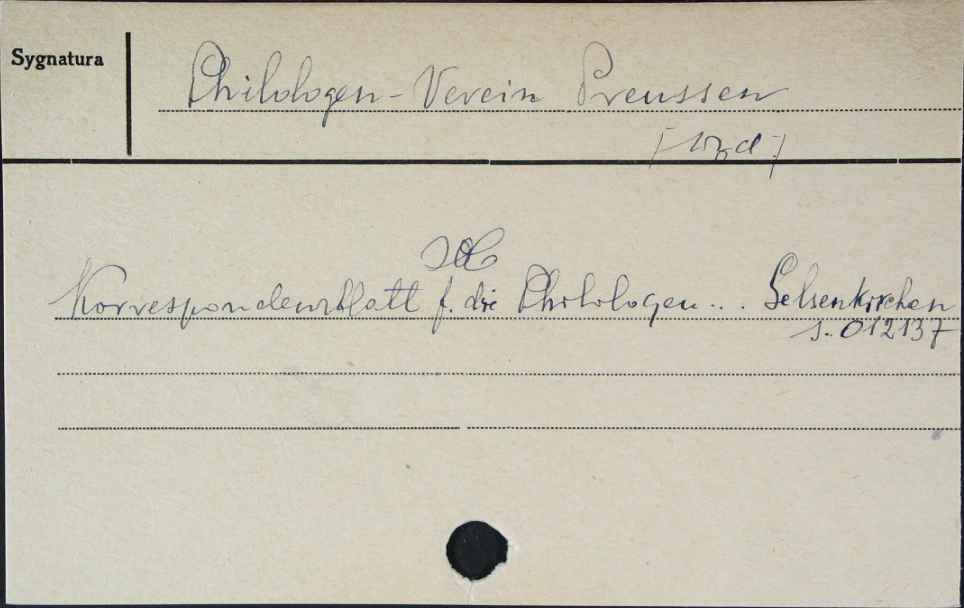 Sygnatura
Philologen-Verein Preussen
[wyd.]
Korrespondenzblatt f. die Philologen... Gelsenkirchen
s. 012137